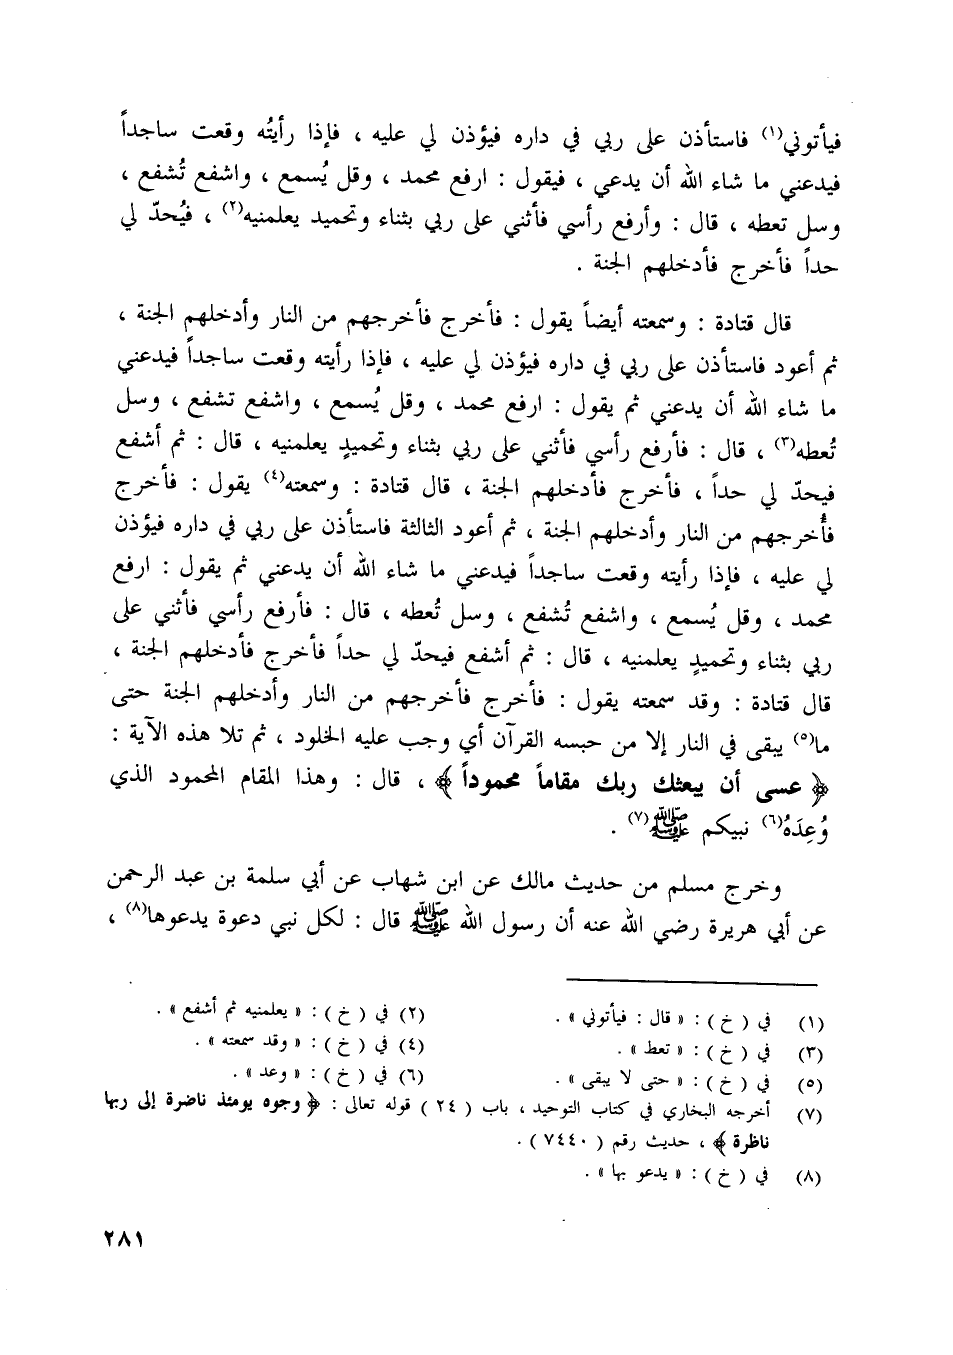 فيأتوني(١) فاستأذن على ربي في داره فيؤذن لي عليه ، فإذا رأيتُه وقعت ساجداً
فيدعني ما شاء الله أن يدعي ، فيقول : ارفع محمد ، وقل يُسمع ، واشفع تُشفع ،
وسل تعطه ، قال : وأرفع رأسي فأثني على ربي بثناء وتحميد يعلمنيه(٢) ، فيُحدّ لي
حداً فأخرج فأدخلهم الجنة .
قال قتادة : وسمعته أيضاً يقول : فأخرج فأخرجهم من النار وأدخلهم الجنة ،
ثم أعود فاستأذن على ربي في داره فيؤذن لي عليه ، فإذا رأيته وقعت ساجداً فيدعني
ما شاء الله أن يدعني ثم يقول : ارفع محمد ، وقل يُسمع ، واشفع تشفع ، وسل
تُعطه(٣) ، قال : فأرفع رأسي فأثني على ربي بثناء وتحميدٍ يعلمنيه ، قال : ثم أشفع
فيحدّ لي حداً ، فأخرج فأدخلهم الجنة ، قال قتادة : وسمعته(٤) يقول : فأخرج
فأُخرجهم من النار وأدخلهم الجنة ، ثم أعود الثالثة فاستأذن على ربي في داره فيؤذن
لي عليه ، فإذا رأيته وقعت ساجداً فيدعني ما شاء الله أن يدعني ثم يقول : ارفع
محمد ، وقل يُسمع ، واشفع تُشفع ، وسل تُعطه ، قال : فأرفع رأسي فأثني على
ربي بثناء وتحميدٍ يعلمنيه ، قال : ثم أشفع فيحدّ لي حداً فأخرج فأدخلهم الجنة ،
قال قتادة : وقد سمعته يقول : فأخرج فأخرجهم من النار وأدخلهم الجنة حتى
ما(٥) يبقى في النار إلا من حبسه القرآن أي وجب عليه الخلود ، ثم تلا هذه الآية :
﴿ عسى أن يبعثك ربك مقاماً محموداً ﴾ ، قال : وهذا المقام المحمود الذي
وُعِدَهُ(٦) نبيكم ﷺ(٧) .
وخرج مسلم من حديث مالك عن ابن شهاب عن أبي سلمة بن عبد الرحمن
عن أبي هريرة رضي الله عنه أن رسول الله ﷺ قال : لكل نبي دعوة يدعوها(٨) ،
(١) في ( خ ) : « قال : فيأتوني » . (٢) في ( خ ) : « يعلمنيه ثم أشفع » .
(٣) في ( خ ) : « تعط » . (٤) في ( خ ) : « وقد سمعته » .
(٥) في ( خ ) : « حتى لا يبقى » . (٦) في ( خ ) : « وعد » .
(٧) أخرجه البخاري في كتاب التوحيد ، باب ( ٢٤ ) قوله تعالى : ﴿ وجوه يومئذ ناضرة إلى ربها
ناظرة ﴾ ، حديث رقم ( ٧٤٤٠ ) .
(٨) في ( خ ) : « يدعو بها » .
٢٨١